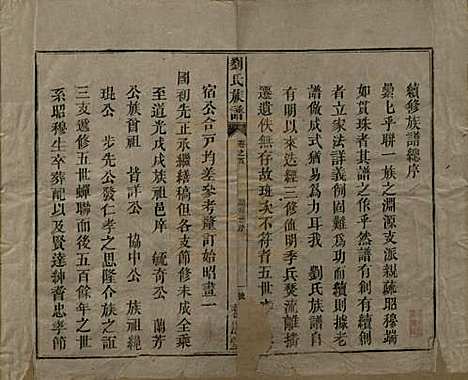 續修族譜總序
纍七乎聯一族之淵源支派親疏昭穆端
如貫珠者其譜之作乎然譜有創有續創
者立家法詳義例固難為功而續則據老
譜做成式猶易為力耳我 劉氏族譜自
有明以來迭經三修值明季兵燹流離播
遷遺佚無存故班次不符者五世
劉氏族譜
宿公合三戶均差參考釐訂始昭畫一
國初先正承繼繕稿但各支節修未成全乘
至道光戊戌族祖邑庠 毓奇公 蘭芳
公族曾祖 祥公 協中公 族祖緄
琨公 步先公發仁孝之思隆合族之誼
三支遞修五世蟬聯而後五百餘年之世
系昭穆生卒葬配以及賢達紳耆忠孝節